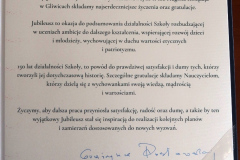 w Gliwicach składamy najserdeczniejsze życzenia oraz gratulacje.
Jubileusz to okazja do podsumowania działalności Szkoły rozbudzającej
w uczniach ambicje do dalszego kształcenia, wspierającej rozwój dzieci
i młodzieży, wychowującej w duchu wartości etycznych
i patriotyzmu.
150 lat działalności Szkoły, to powód do prawdziwej satysfakcji i dumy tych, którzy
tworzyli jej dotychczasową historię. Szczególne gratulacje składamy Nauczycielom,
którzy dzielą się z wychowankami swoją wiedzą, mądrością
i wartościami.
Życzymy, aby dalsza praca przyniosła satysfakcję, radość oraz dumę, a także by ten
wyjątkowy Jubileusz stał się inspiracją do realizacji kolejnych planów
i zamierzeń dostosowanych do nowych wyzwań.